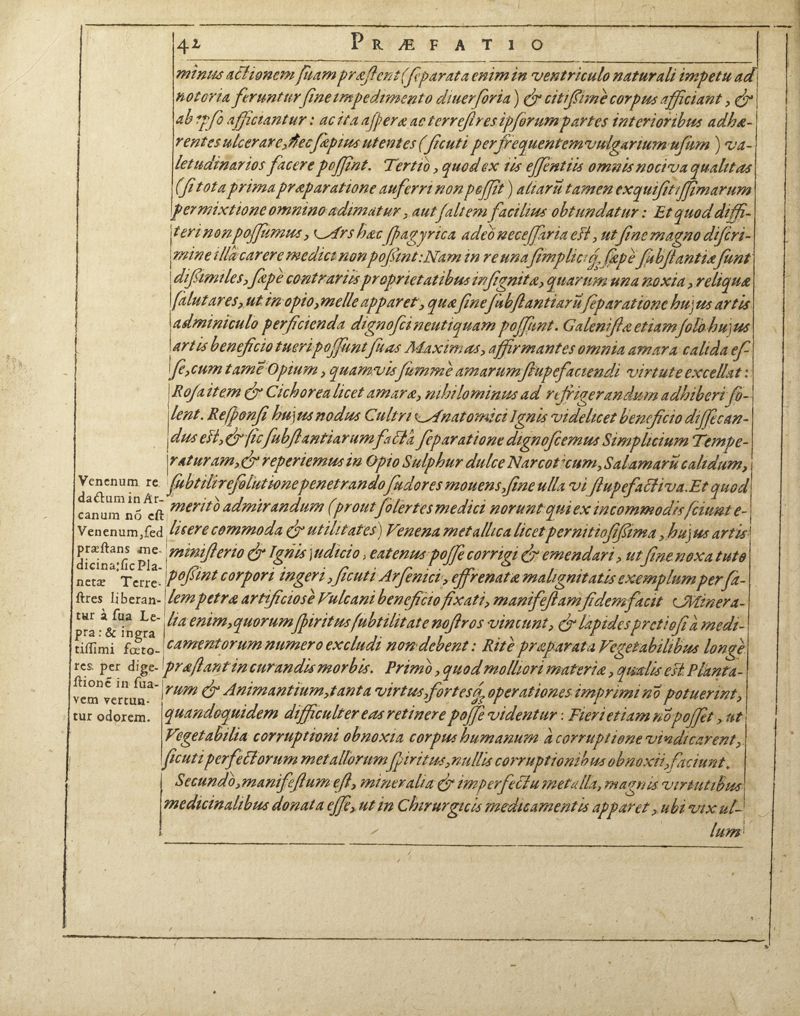 42 PRÆFATIO
minus actionem suam præstent (separata enim in ventriculo naturali impetu ad
notoria feruntur sine impedimento diuersoria) & citißimè corpus afficiant, &
ab ipso afficiantur: ac ita asperæ ac terrestres ipsorum partes interioribus adhæ-
rentes ulcerare, sæpius utentes (sicuti per frequentem vulgarium usum) va-
letudinarios facere possint. Tertiò, quod ex iis essentiis omnis nociva qualitas
(si tota prima præparatione auferri non possit) aliarū tamen exquisitissimarum
permixtione omnino adimatur, aut saltem facilius obtundatur: Et quod diffi-
teri non possumus, Ars hæc spagyrica adeò necessaria est, ut sine magno discri-
mine illâ carere medici non poßint: Nam in re una simpliciq́; sæpè substantiæ sunt
dißimiles, sæpè contrariis proprietatibus insignitæ, quarum una noxia, reliquæ
salutares, ut in opio, melle apparet, quæ sine substantiarū separatione hujus artis
adminiculo perficienda dignosci neutiquam possunt. Galenistæ etiam solo hujus
artis beneficio tueri possunt suas Maximas, affirmantes omnia amara calida es-
se, cum tamē Opium, quamvis summè amarum stupefaciendi virtute excellat:
Rosa item & Cichorea licet amaræ, nihilominus ad refrigerandum adhiberi so-
lent. Responsi hujus nodus Cultri Anatomici Ignis videlicet beneficio dissecan-
dus est, & sic substantiarum factâ separatione dignoscemus Simplicium Tempe-
raturam, & reperiemus in Opio Sulphur dulce Narcoticum, Salamarū calidum,
subtili resolutione penetrando sudores mouens, sine ulla vi stupefactiva. Et quod
meritò admirandum (prout solertes medici norunt qui ex incommodis sciunt e-
licere commoda & utilitates) Venena metallica licet pernitiosißima, hujus artis
ministerio & Ignis judicio, eatenus posse corrigi & emendari, ut sine noxa tutò
poßint corpori ingeri, sicuti Arsenici, effrenatæ malignitatis exemplum per fa-
lem petræ artificiosè Vulcani beneficio fixati, manifestam fidem facit Minera-
lia enim, quorum spiritus subtilitate nostros vincunt, & lapides pretiosi à medi-
camentorum numero excludi non debent: Ritè præparata Vegetabilibus longè
præstant in curandis morbis. Primò, quod molliori materiæ, qualis est Planta-
rum & Animantium, tanta virtus, fortesq́; operationes imprimi nō potuerint,
quandoquidem difficulter eas retinere posse videntur: Fieri etiam nō posset, ut
Vegetabilia corruptioni obnoxia corpus humanum à corruptione vindicarent,
sicuti perfectorum metallorum spiritus, nullis corruptionibus obnoxii, faciunt.
Secundò, manifestum est, mineralia & imperfecta metalla, magnis virtutibus
medicinalibus donata esse, ut in Chirurgicis medicamentis apparet, ubi vix ul-
lum
Venenum re
dactum in Ar-
canum nō est
Venenum, sed
præstans me-
dicina; sic Pla-
netæ Terre-
stres liberan-
tur à sua Le-
pra: & ingra
tissimi fœto-
res. per dige-
stionē in sua-
vem vertun-
tur odorem.